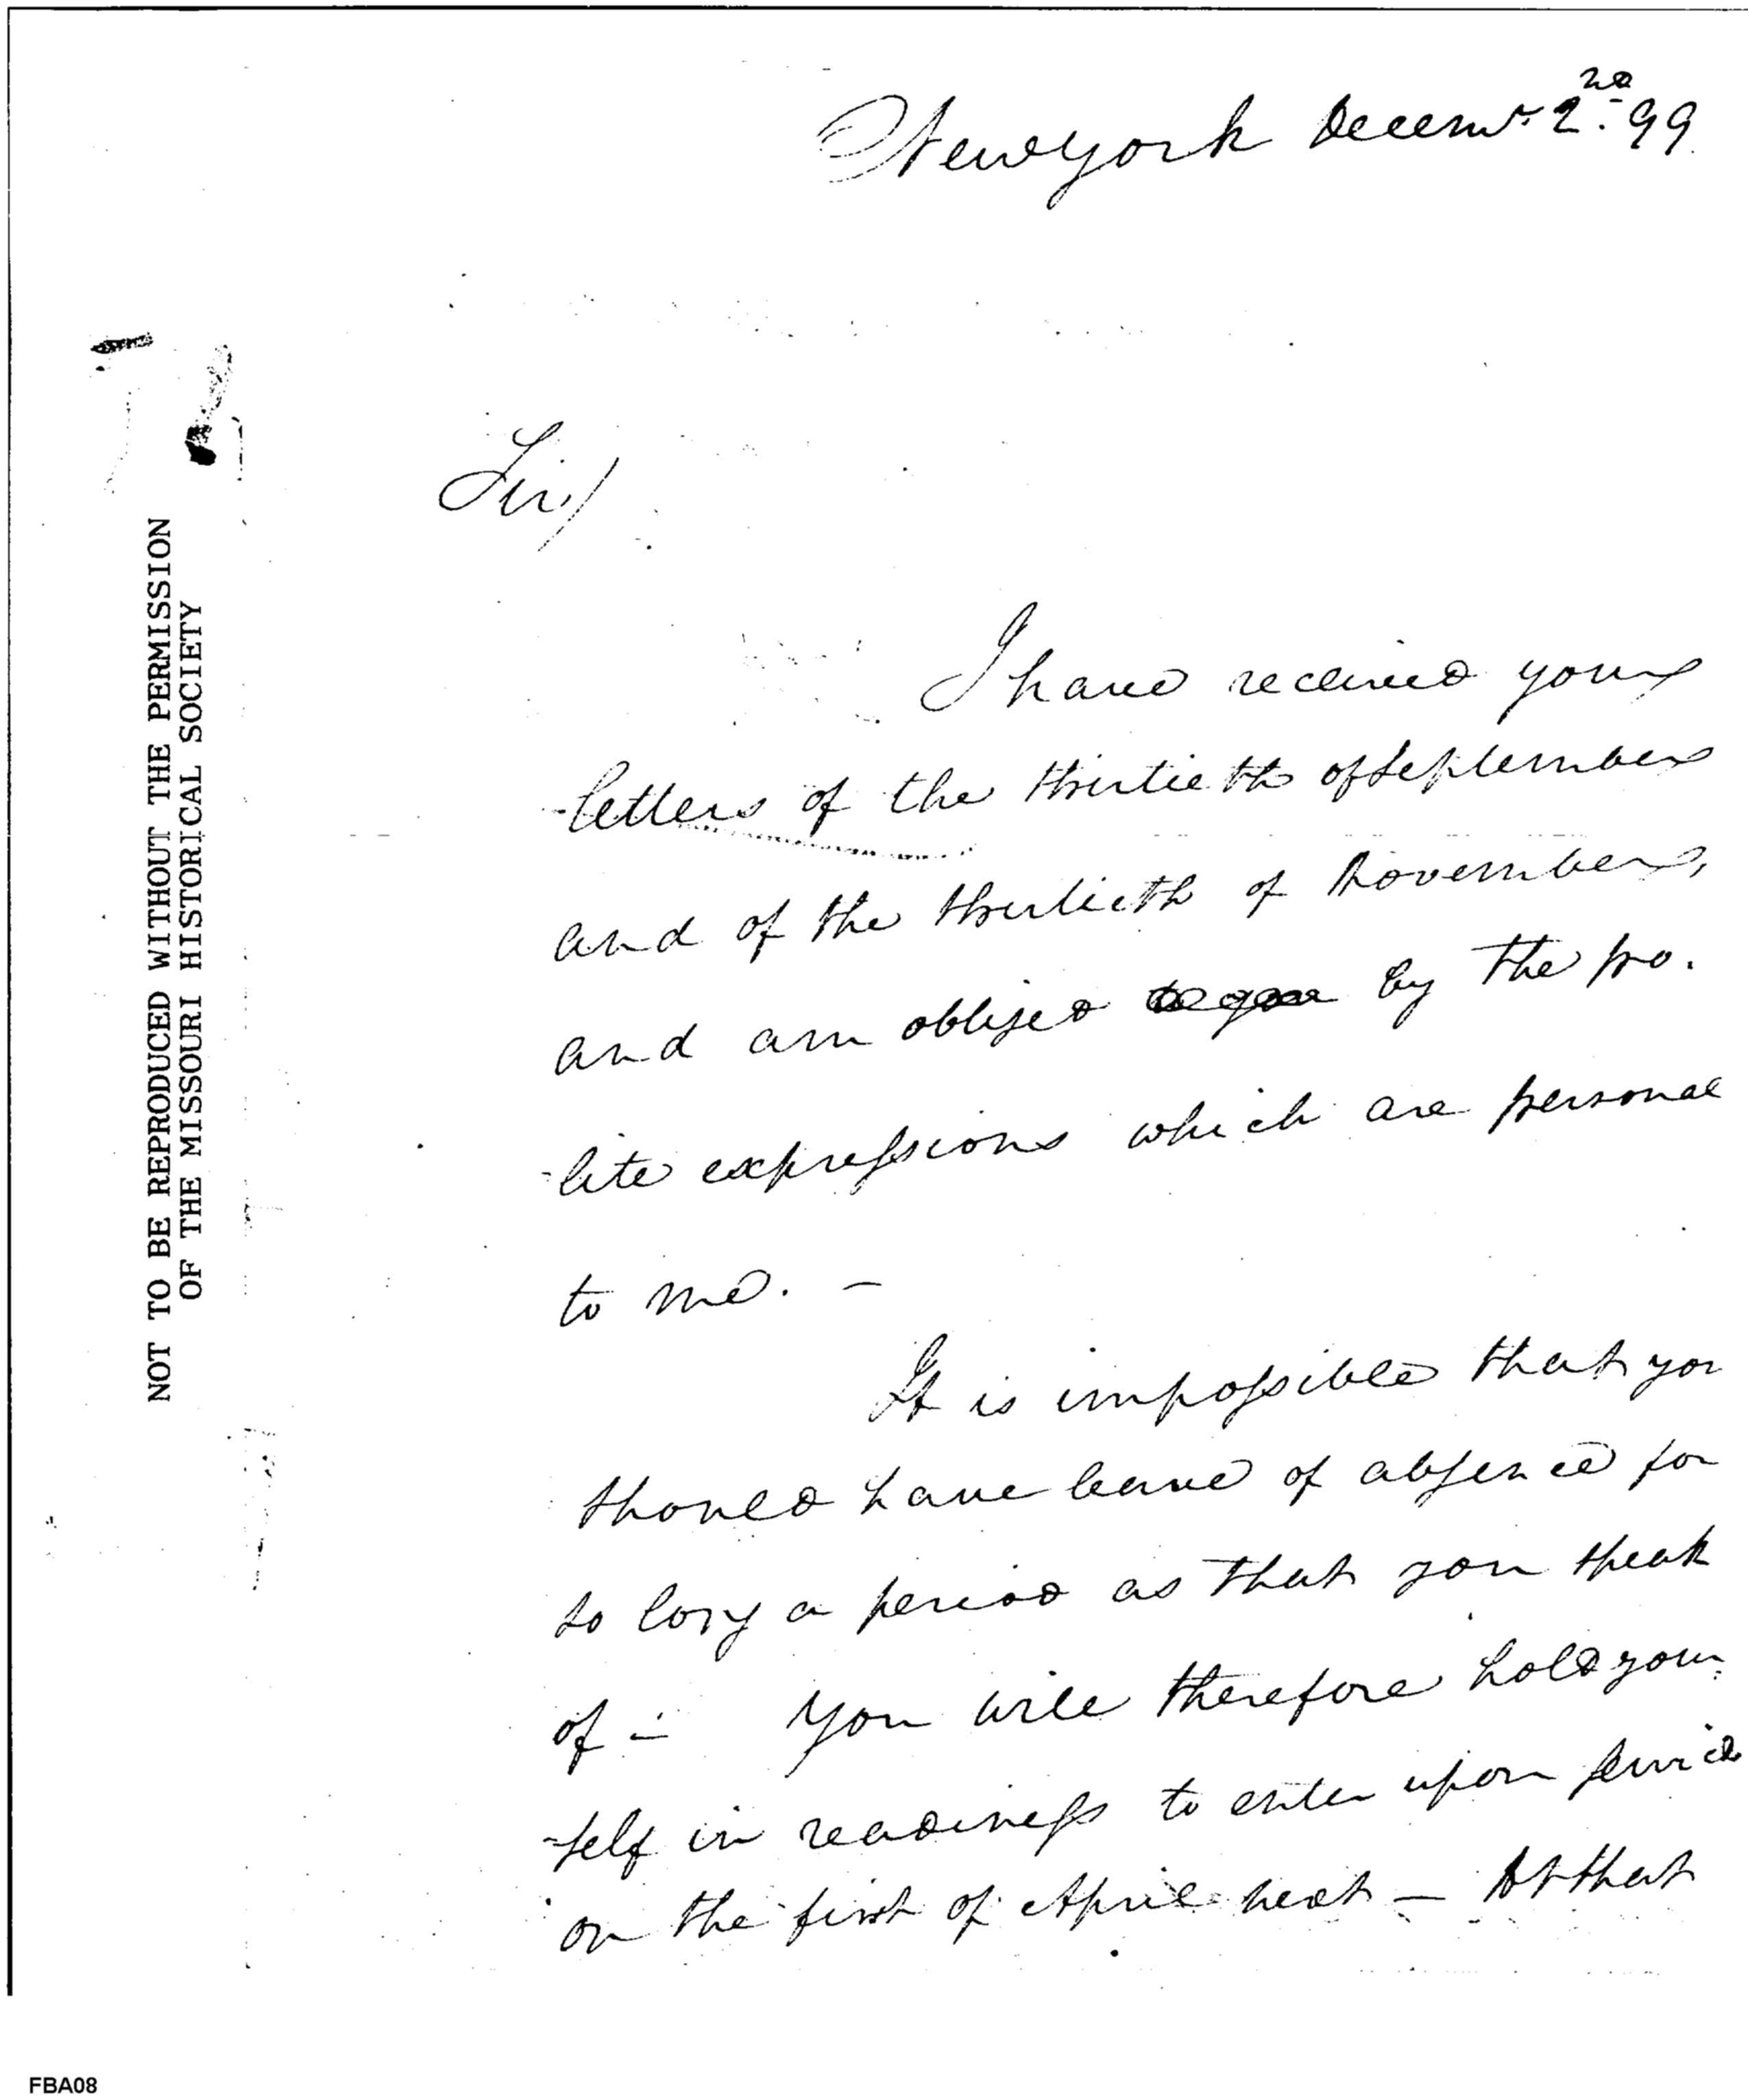 New York Decemr. 2nd. 99
Sir/
I have received your
letters of the thirtieth of September
and of the thirtieth of November,
and am obliged to you by the po-
lite expressions which are personal
to me. —
It is impossible that you
should have leave of absence for
so long a period as that you speak
of — You will therefore hold your-
self in readiness to enter upon service
on the first of April next — At that
NOT TO BE REPRODUCED WITHOUT THE PERMISSION
OF THE MISSOURI HISTORICAL SOCIETY
FBA08